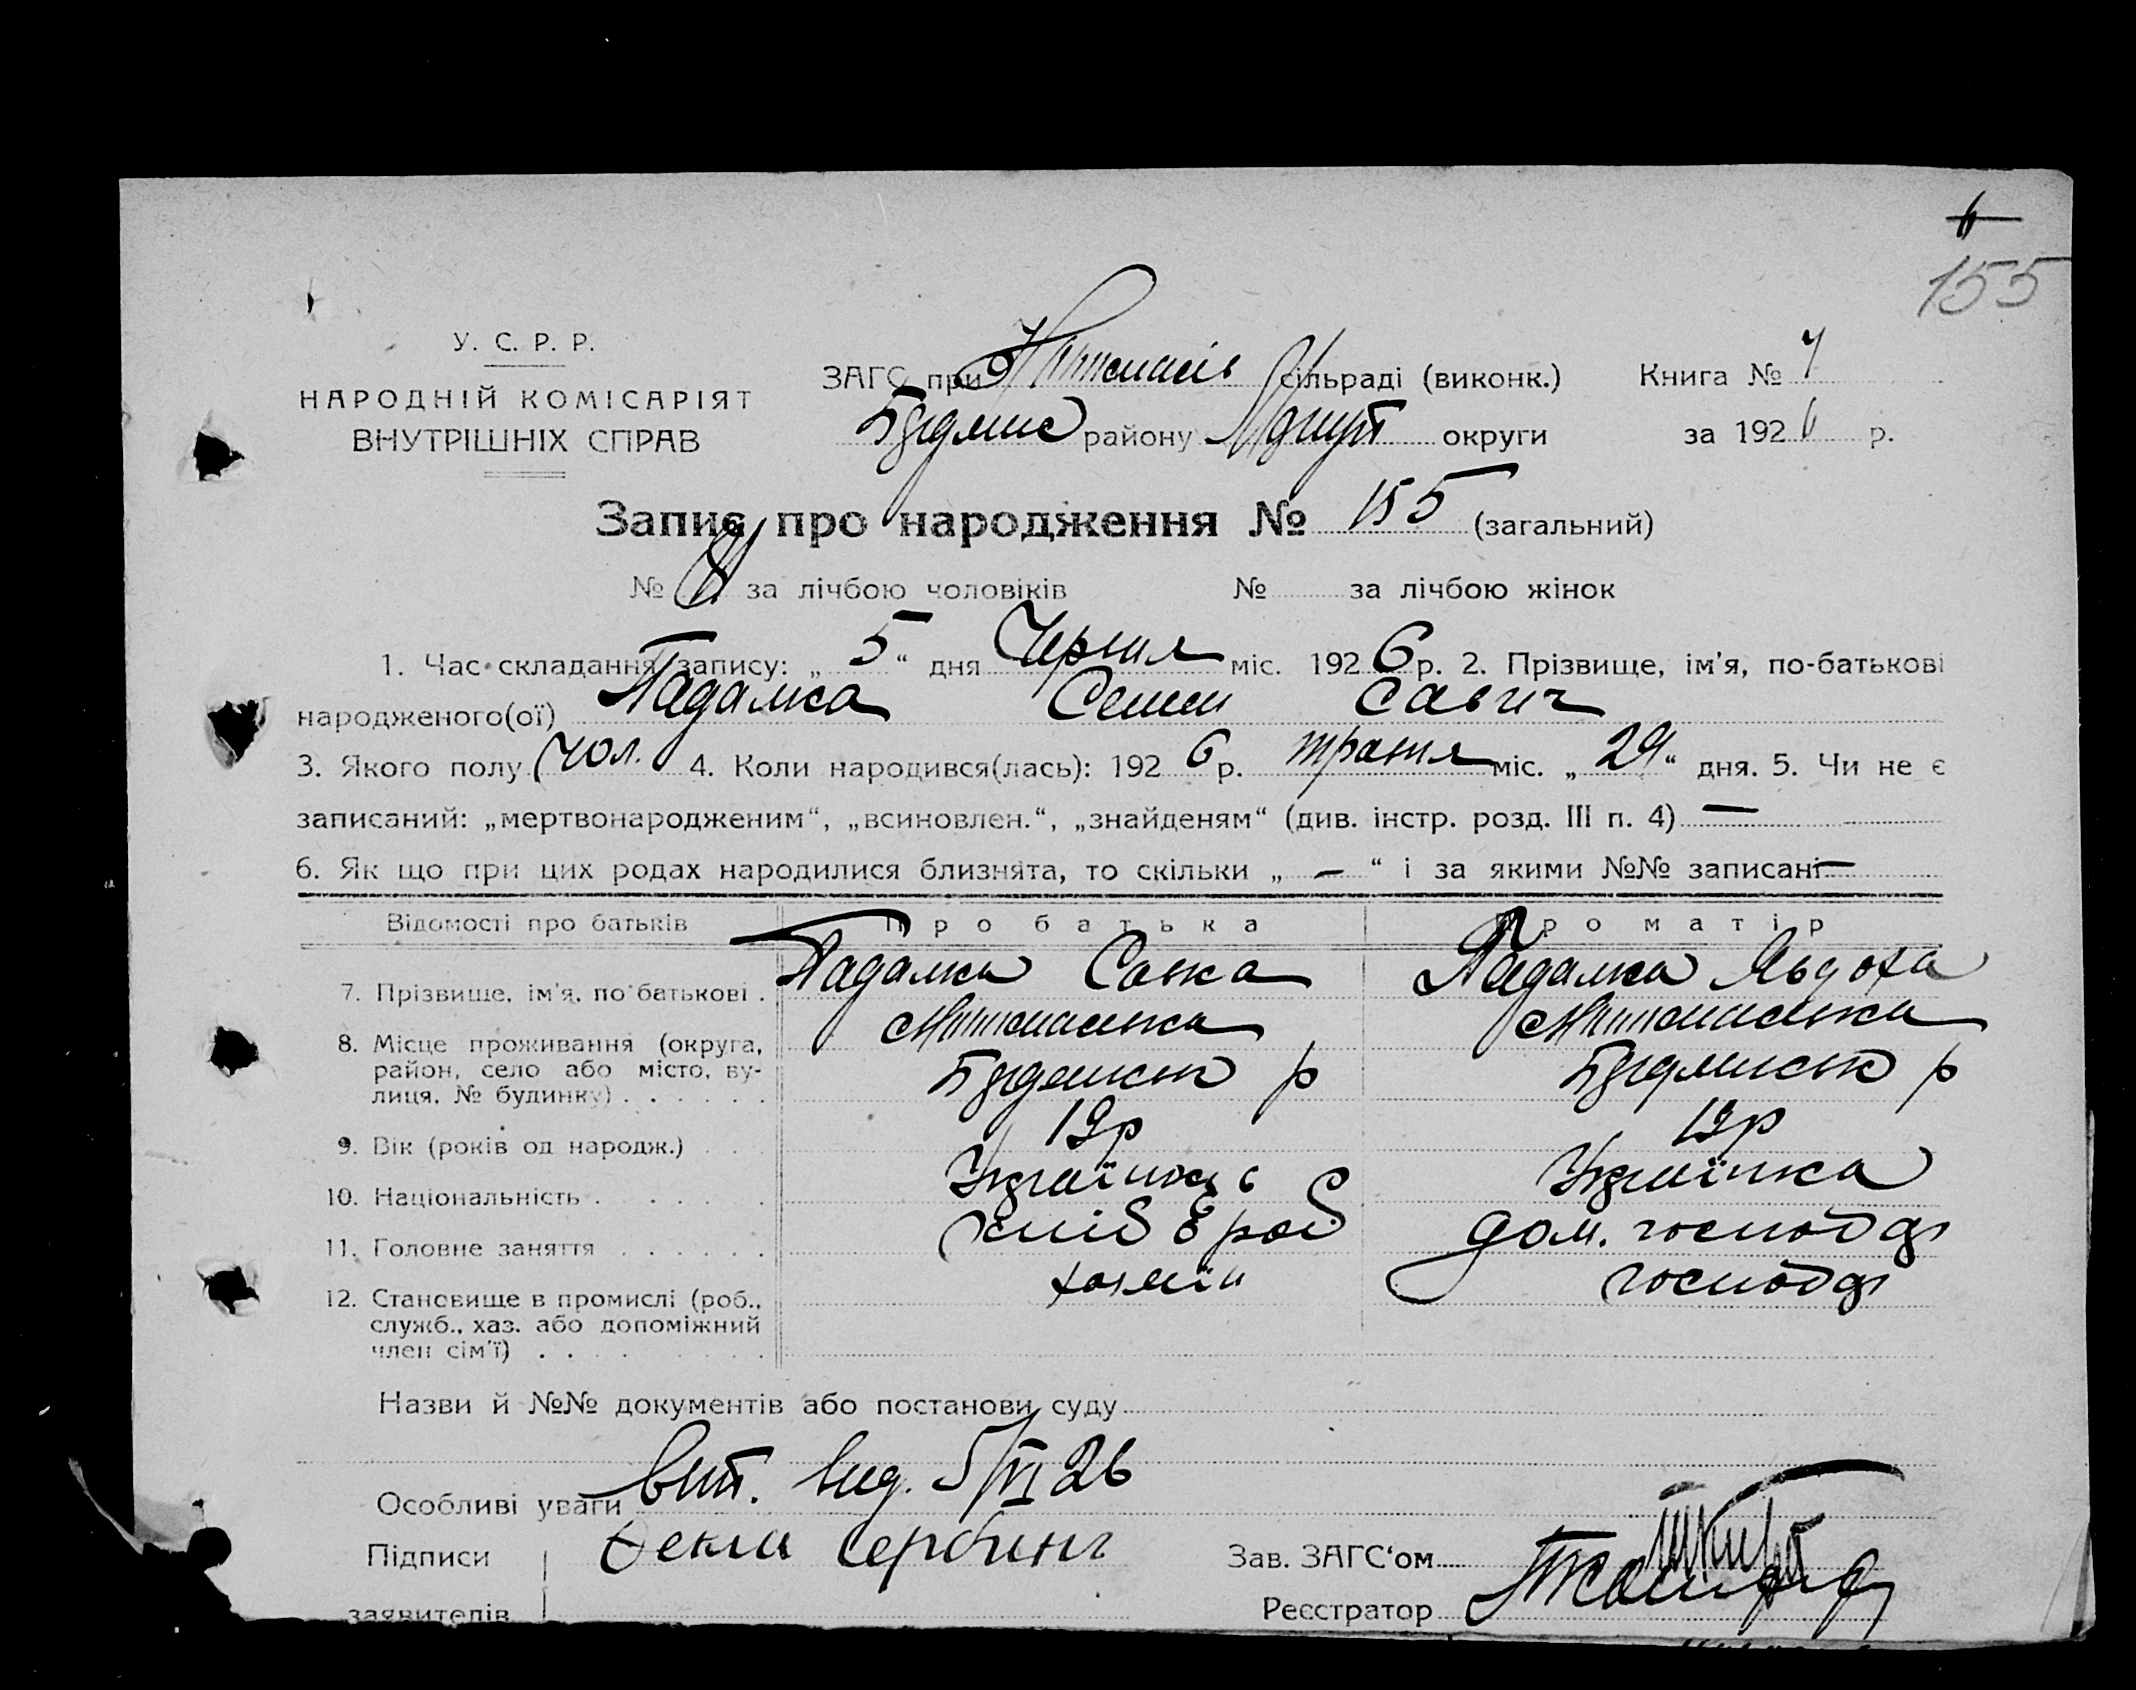 6
155
У. С. Р. Р.
НАРОДНІЙ КОМІСАРІЯТ
ВНУТРІШНІХ СПРАВ
ЗАГС при сільраді (виконк.) Книга №
району округи за 1926 р.
Запис про народження № 155 (загальний)
№ за лічбою чоловіків № за лічбою жінок
1. Час складання запису: „ 5 “ дня Червня міс. 1926 р. 2. Прізвище, ім'я, по-батькові
народженого(ої) Падалка Семен Савич
3. Якого полу чол. 4. Коли народився(лась): 1926 р. травня міс. „ 29 “ дня. 5. Чи не є
записаний: „мертвонародженим“, „всиновлен.“, „знайденям“ (див. інстр. розд. III п. 4) —
6. Як що при цих родах народилися близнята, то скільки „ — “ і за якими №№ записані —
Відомості про батьків Про батька Про матір
7. Прізвище, ім'я, по батькові . Падалка Савка Падалка Явдоха
8. Місце проживання (округа,
район, село або місто, ву-
лиця, № будинку) . . . . . .
р р
9. Вік (років од народж.) . . .
10. Національність . . . . . Українець Українка
11. Головне заняття . . . . . . хлібороб дом. господар
12. Становище в промислі (роб.,
служб., хаз. або допоміжний
член сім'ї) . . . . . . . хозяїн господар
Назви й №№ документів або постанови суду
Особливі уваги вит. вид. 5/VI 26
Підписи Зав. ЗАГС‘ом
заявителів Реєстратор